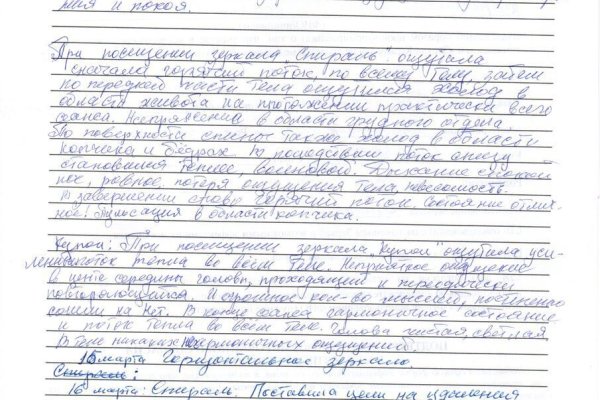 мия и покоя.
При посещении зеркала „Спираль" ощутила
сначала горячий поток, по всему телу, затем
по передней части тела ощущался холод в
области живота на протяжении практически всего
сеанса. Напряжение в области грудного отдела.
По поверхности спины также холод в области
копчика и бёдрах. В последствии поток снизу
становился теплее, волновой. Дыхание спокой
ное, ровное, потеря ощущения тела, невесомость.
В завершении снова горячий поток. Состояние отлич-
ное. Пульсация в области копчика.
Купол: При посещении зеркала „Купол" ощутила уси-
ление поток тепла во всём теле. Неприятное ощущение
в центре середины головы, проходящий и периодически
повторяющийся. И огромное кол-во мыслей, постепенно
сошли на нет. В конце сеанса гармоничное состояние
и поток тепла во всём теле. Голова чистая, светлая,
в теле никаких негармоничных ощущений.
15 марта Горизонтальное зеркало.
Спираль:
16 марта: Спираль. Поставила цели на удаления